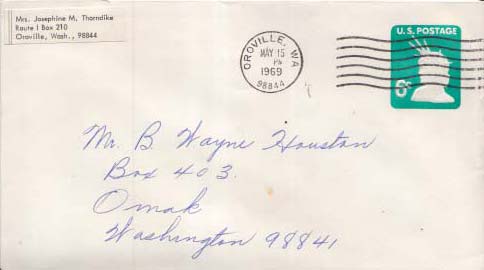 Mrs. Josephine M. Thorndike
Route 1 Box 210
Oroville, Wash., 98844
OROVILLE, WA
MAY 15
PM
1969
98844
U.S. POSTAGE
6c
Mr. B Wayne Houston
Box 403.
Omak
Washington 98841